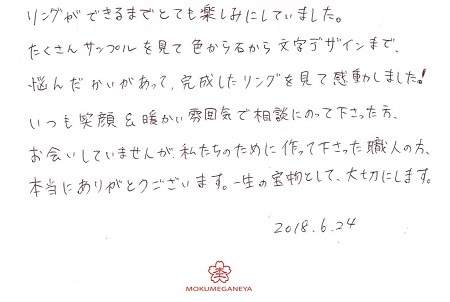 リングができるまでとても楽しみにしていました。
たくさんサンプルを見て色から石から文字デザインまで、
悩んだかいがあって、完成したリングを見て感動しました!
いつも笑顔&暖かい雰囲気で相談にのって下さった方、
お会いしていませんが、私たちのために作って下さった職人の方、
本当にありがとうございます。一生の宝物として、大切にします。
2018.6.24
MOKUMEGANEYA